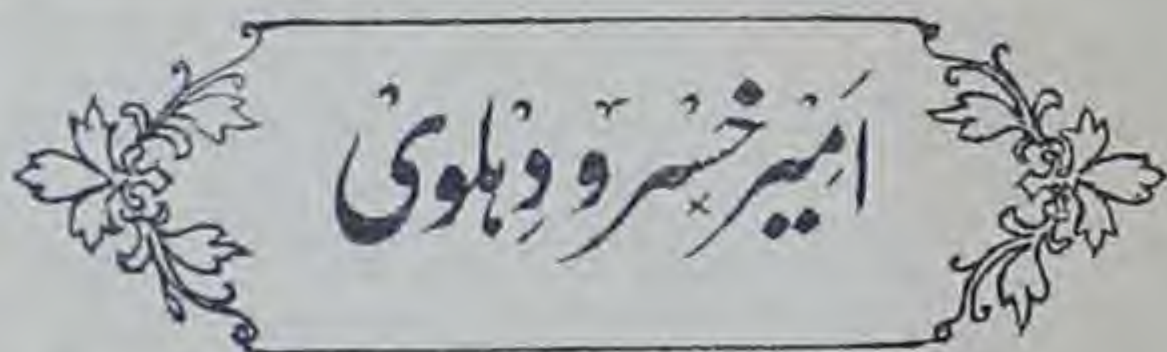 اَمِیر خُسرو دِہلوی